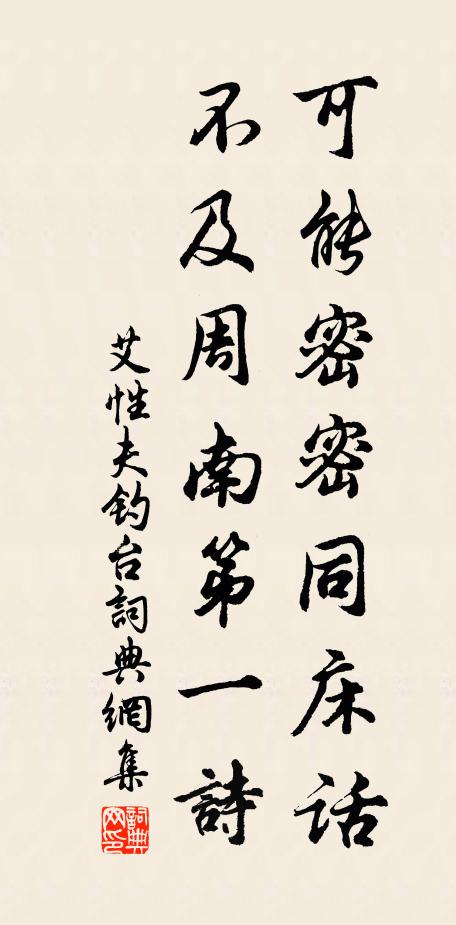 可能密密同床话
不及周南第一詩
艾性夫钓台詞典網集
詞典网印